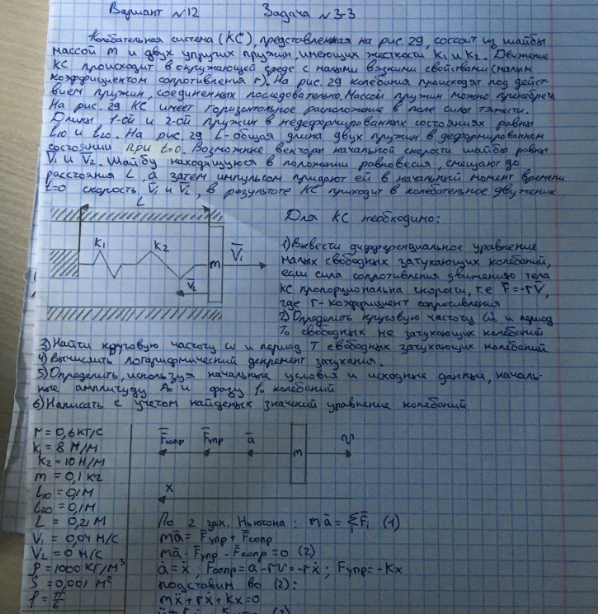 Вариант №12 Задача №3-3
Колебательная система (КС), представленная на рис. 29, состоит из шайбы
массой m и двух упругих пружин, имеющих жесткости K₁ и K₂. Движение
КС происходит в окружающей среде с малыми вязкими свойствами (малым
коэффициентом сопротивления r). На рис. 29 колебания происходят под дейст-
вием пружин, соединенных последовательно. Массой пружин можно пренебречь
На рис. 29 КС имеет горизонтальное расположение в поле силы тяжести.
Длины 1-ой и 2-ой пружин в недеформированных состояниях равны
l₁₀ и l₂₀. На рис. 29 L-общая длина двух пружин в деформированном
состоянии при t=0. Возможные векторы начальной скорости шайбы равны
V̄₁ и V̄₂. Шайбу находящуюся в положении равновесия, смещают до
расстояния L, а затем импульсом придают ей в начальный момент времени
t=0 скорость V̄₁ и V̄₂, в результате КС приходит в колебательное движение
L
K₁ K₂ m V̄₁
V̄₂
Для КС необходимо:
1) Вывести дифференциальное уравнение
малых свободных затухающих колебаний,
если сила сопротивления движению тела
КС пропорциональна скорости, т.е F̄=-rV̄,
где r-коэффициент сопротивления
2) Определить круговую частоту ω₀ и период
T₀ свободных не затухающих колебаний
3) Найти круговую частоту ω и период T свободных затухающих колебаний
4) Вычислить логарифмический декремент затухания.
5) Определить, используя начальные условия и исходные данные, началь-
ные амплитуду A₀ и фазу φ₀ колебаний
6) Написать с учетом найденых значений уравнение колебаний.
r=0,6 кг/с
K₁=8 Н/м
K₂=10 Н/м
m=0,1 кг
l₁₀=0,1м
l₂₀=0,1м
L=0,21м
V₁=0,04 м/с
V₂=0 м/с
ρ=1000 кг/м³
S=0,001 м²
F̄сопр F̄упр ā m v
x
По 2 зак. Ньютона: mā=ΣF̄i (1)
mā=F̄упр+F̄сопр
ma-Fупр-Fсопр=0 (2)
a=ẍ; Fсопр=a-rv=-rẋ; Fупр=-Kx
подставим во (2):
mẍ+rẋ+Kx=0